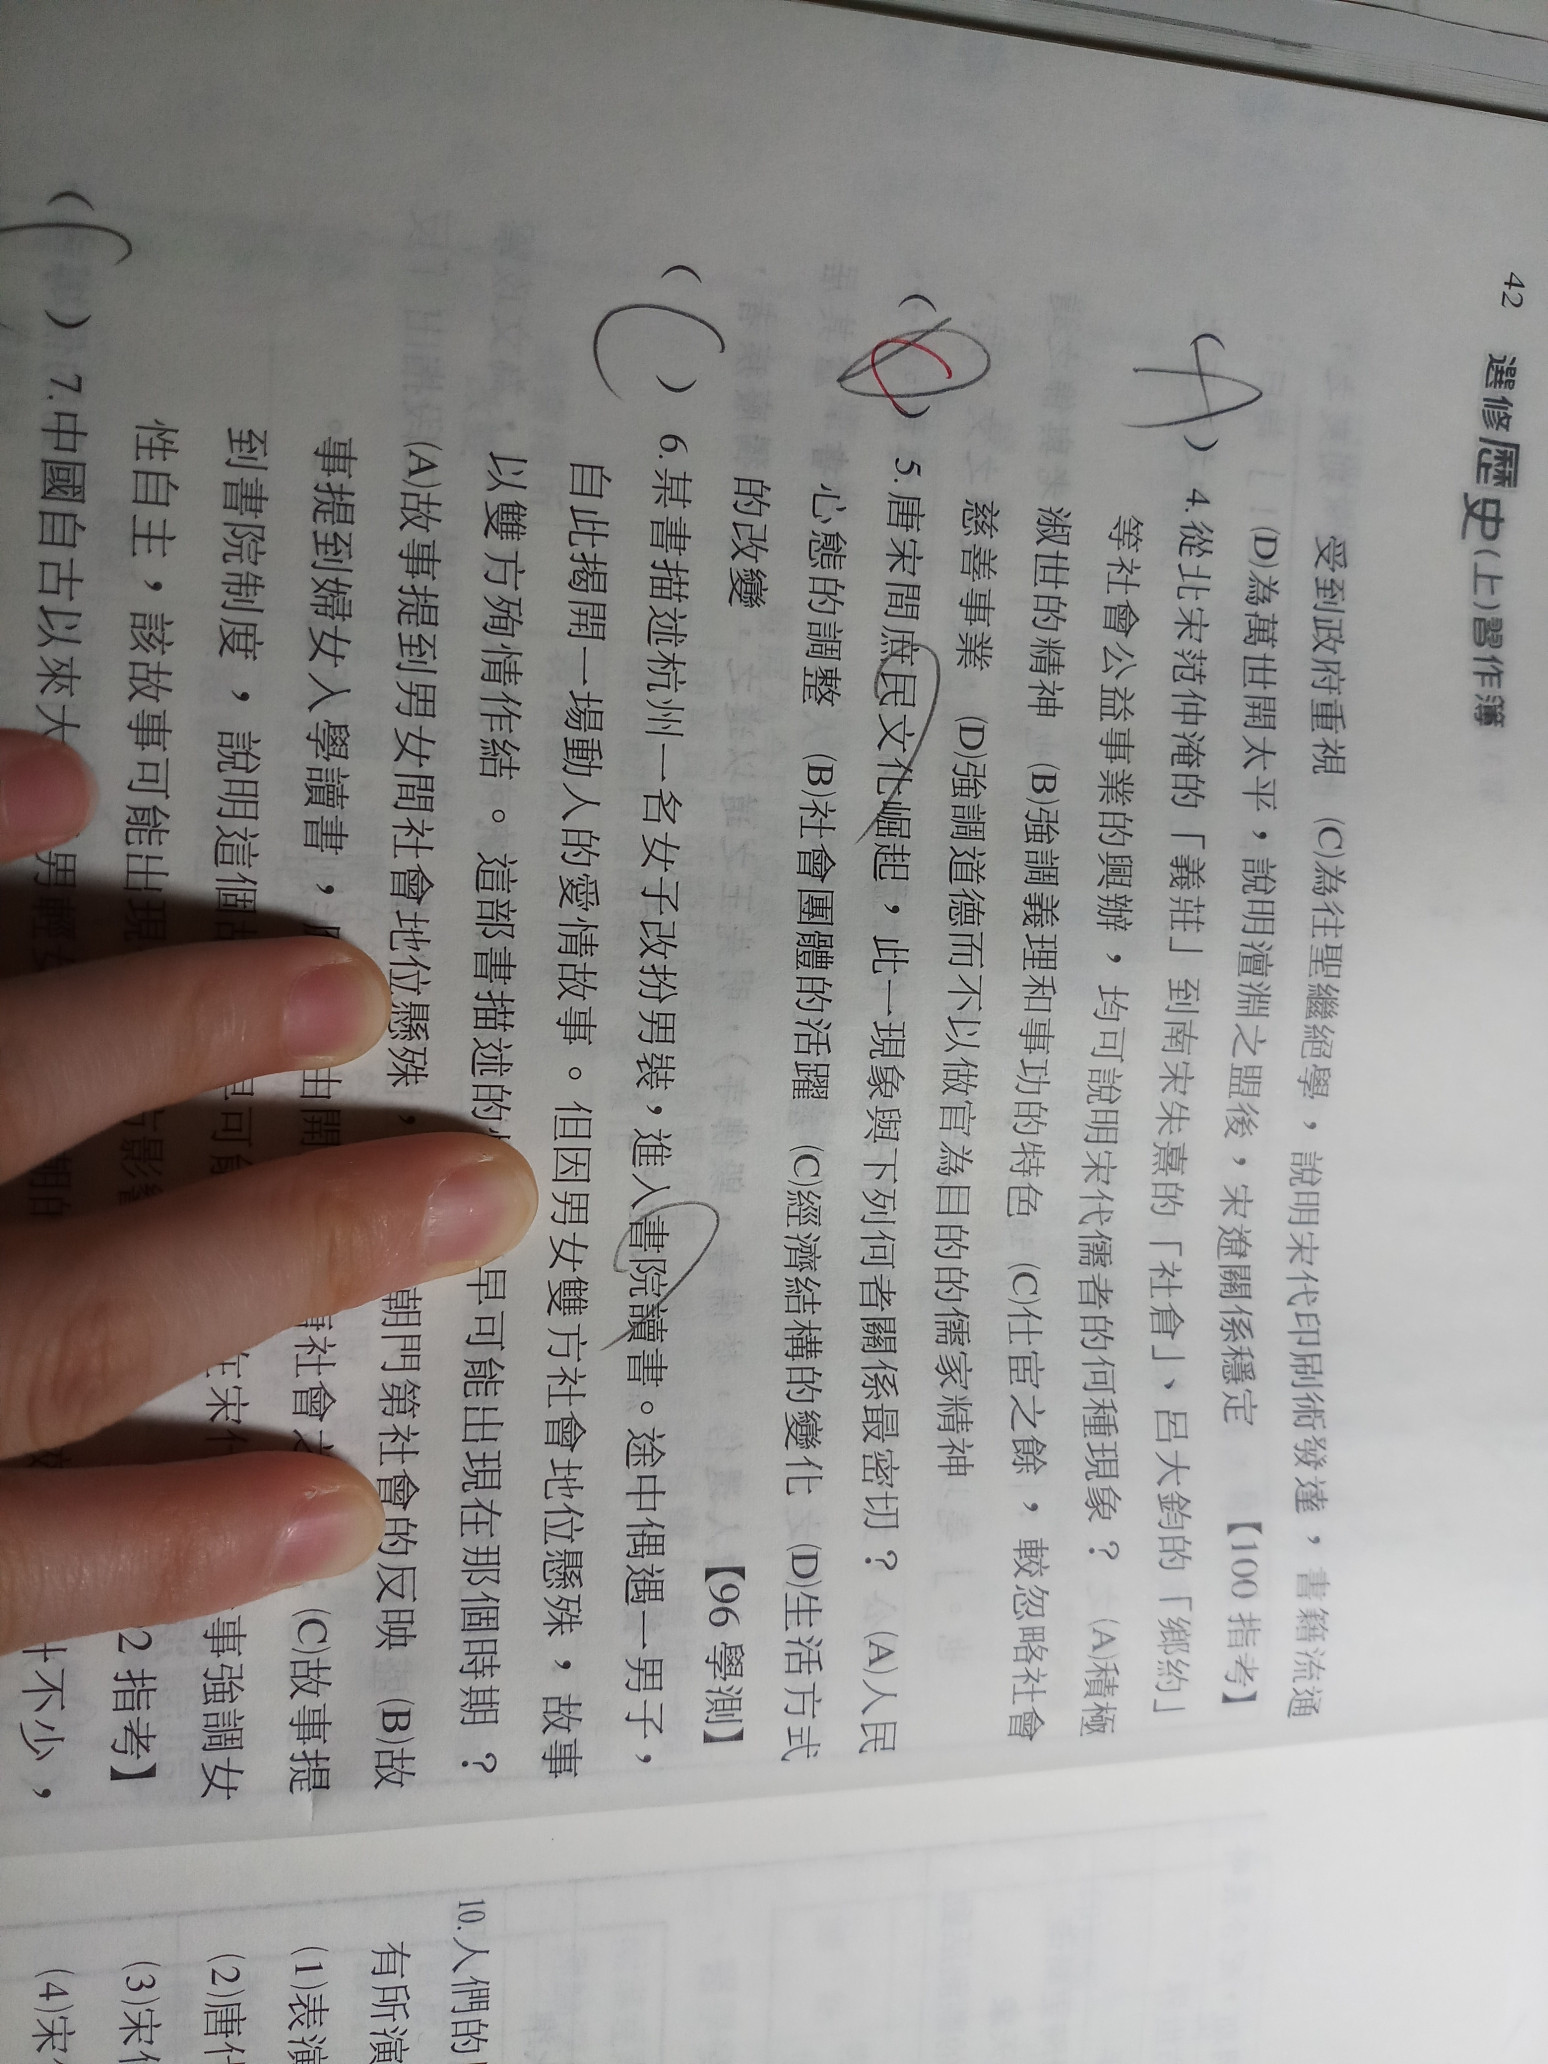 42 選修歷史(上)習作簿
受到政府重視 (C)為往聖繼絕學，說明宋代印刷術發達，書籍流通
(D)為萬世開太平，說明澶淵之盟後，宋遼關係穩定 【100 指考】
(A) 4.從北宋范仲淹的「義莊」到南宋朱熹的「社倉」、呂大鈞的「鄉約」
等社會公益事業的興辦，均可說明宋代儒者的何種現象？ (A)積極
淑世的精神 (B)強調義理和事功的特色 (C)仕宦之餘，較忽略社會
慈善事業 (D)強調道德而不以做官為目的的儒家精神
( ) 5.唐宋間庶民文化崛起，此一現象與下列何者關係最密切？ (A)人民
心態的調整 (B)社會團體的活躍 (C)經濟結構的變化 (D)生活方式
的改變 【96 學測】
(C) 6.某書描述杭州一名女子改扮男裝，進入書院讀書。途中偶遇一男子，
自此揭開一場動人的愛情故事。但因男女雙方社會地位懸殊，故事
以雙方殉情作結。這部書描述的 早可能出現在那個時期？
(A)故事提到男女間社會地位懸殊， 朝門第社會的反映 (B)故
事提到婦女入學讀書， 出開 社會 (C)故事提
到書院制度，說明這個 可 在宋 事強調女
性自主，該故事可能出現 2 指考】
( ) 7.中國自古以來大 不少，
10.人們的
有所演
(1)表演
(2)唐代
(3)宋
(4)宋